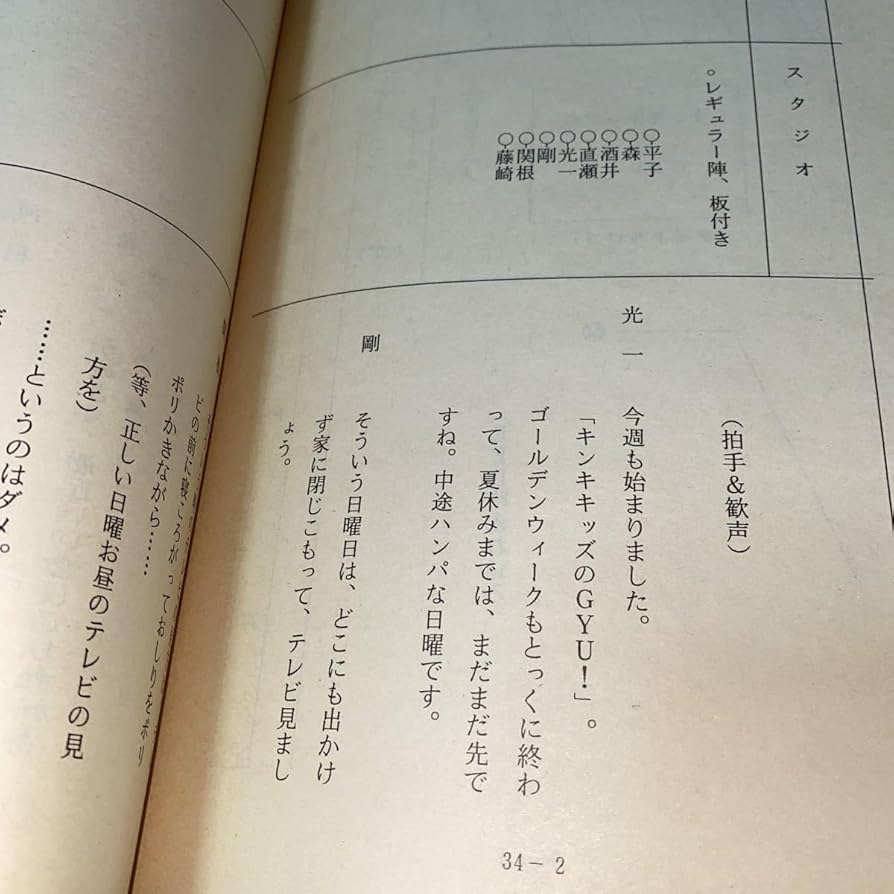 スタジオ
○レギュラー陣、板付き
○平子
○森
○酒井
○直瀬
○光一
○剛
○関根
○藤崎
(拍手&歓声)
光一
今週も始まりました。
「キンキキッズのGYU!」。
ゴールデンウィークもとっくに終わ
って、夏休みまでは、まだまだ先で
すね。中途ハンパな日曜です。
剛
そういう日曜日は、どこにも出かけ
ず家に閉じこもって、テレビ見まし
ょう。
34-2
ビの前に寝ころがっておしりをポリ
ポリかきながら……
(等、正しい日曜お昼のテレビの見
方を)
……というのはダメ。